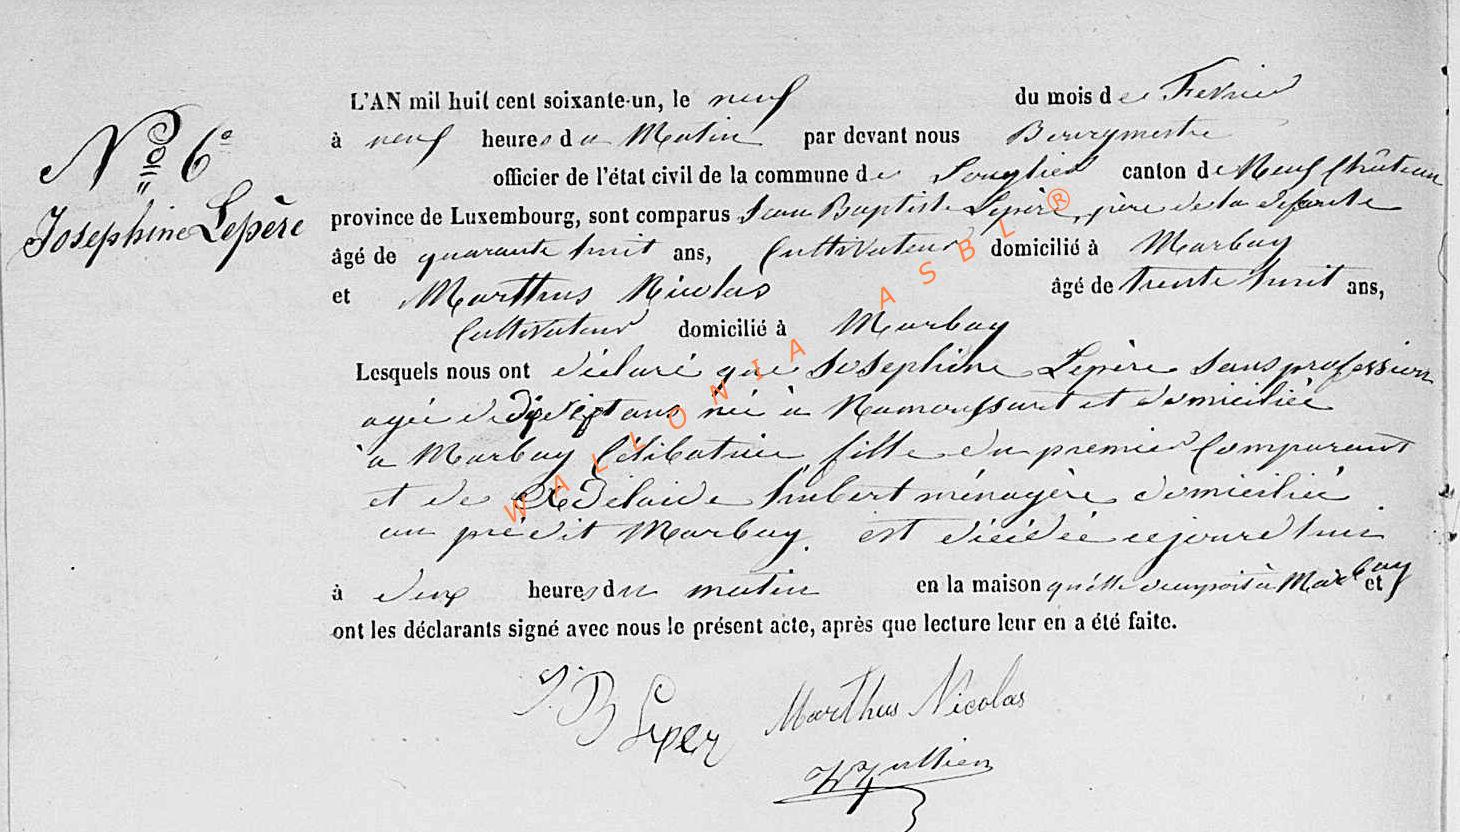 N° 6°
Josephine Lepère
L'AN mil huit cent soixante-un, le neuf du mois de Fevrier
à neuf heures du Matin par devant nous Bourgmestre
officier de l'état civil de la commune de Longlier canton de Neufchâteau
province de Luxembourg, sont comparus Jean Baptiste Lepère, père de la défunte
âgé de quarante huit ans, Cultivateur domicilié à Marbay
et Marthus Nicolas âgé de trente huit ans,
Cultivateur domicilié à Marbay
Lesquels nous ont déclaré que Josephine Lepère sans profession
agée de ans née à Namoussart et domiciliée
à Marbay Célibataire, fille du premier Comparant
et de Adélaide hubert ménagère domiciliée
au prédit Marbay. est décédée cejourd'hui
à deux heures du matin en la maison qu'elle occupoit à Marbay et
ont les déclarants signé avec nous le présent acte, après que lecture leur en a été faite.
J. B Leper Marthus Nicolas
WALLONIA ASBL ®